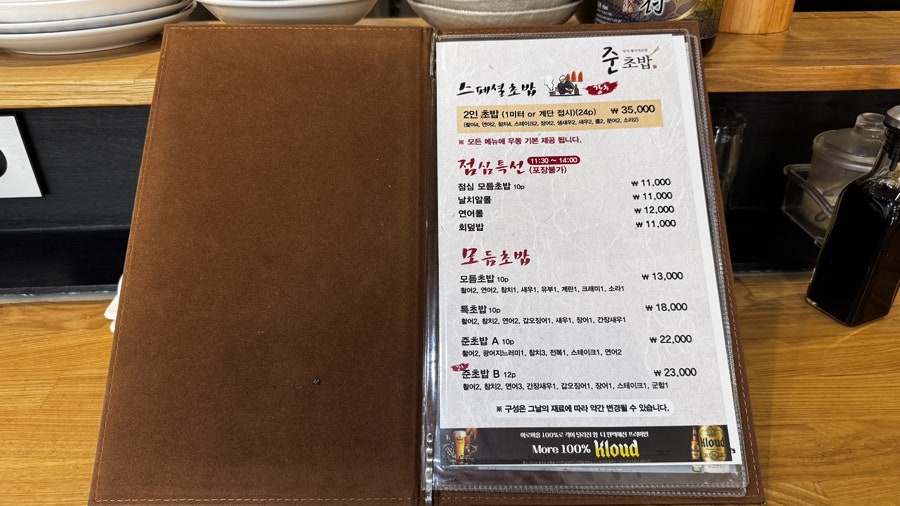 준초밥
스페셜초밥
2인 초밥 (1미터 or 계단 접시)(24p) ₩ 35,000
(활어4, 연어2, 참치4, 스테이크2, 장어2, 생새우2, 새우2, 롤2, 문어2, 소라2)
※ 모든 메뉴에 우동 기본 제공 됩니다.
점심특선 11:30 ~ 14:00
(포장불가)
점심 모듬초밥 10p ₩ 11,000
날치알롤 ₩ 11,000
연어롤 ₩ 12,000
회덮밥 ₩ 11,000
모듬초밥
모듬초밥 10p ₩ 13,000
활어2, 연어2, 참치1, 새우1, 유부1, 계란1, 크래미1, 소라1
특초밥 10p ₩ 18,000
활어2, 참치2, 연어2, 갑오징어1, 새우1, 장어1, 간장새우1
준초밥 A 10p ₩ 22,000
활어2, 광어지느러미1, 참치3, 전복1, 스테이크1, 연어2
준초밥 B 12p ₩ 23,000
활어2, 참치2, 연어3, 간장새우1, 갑오징어1, 장어1, 스테이크1, 군함1
※ 구성은 그날의 재료에 따라 약간 변경될 수 있습니다.
More 100% Kloud
Kloud